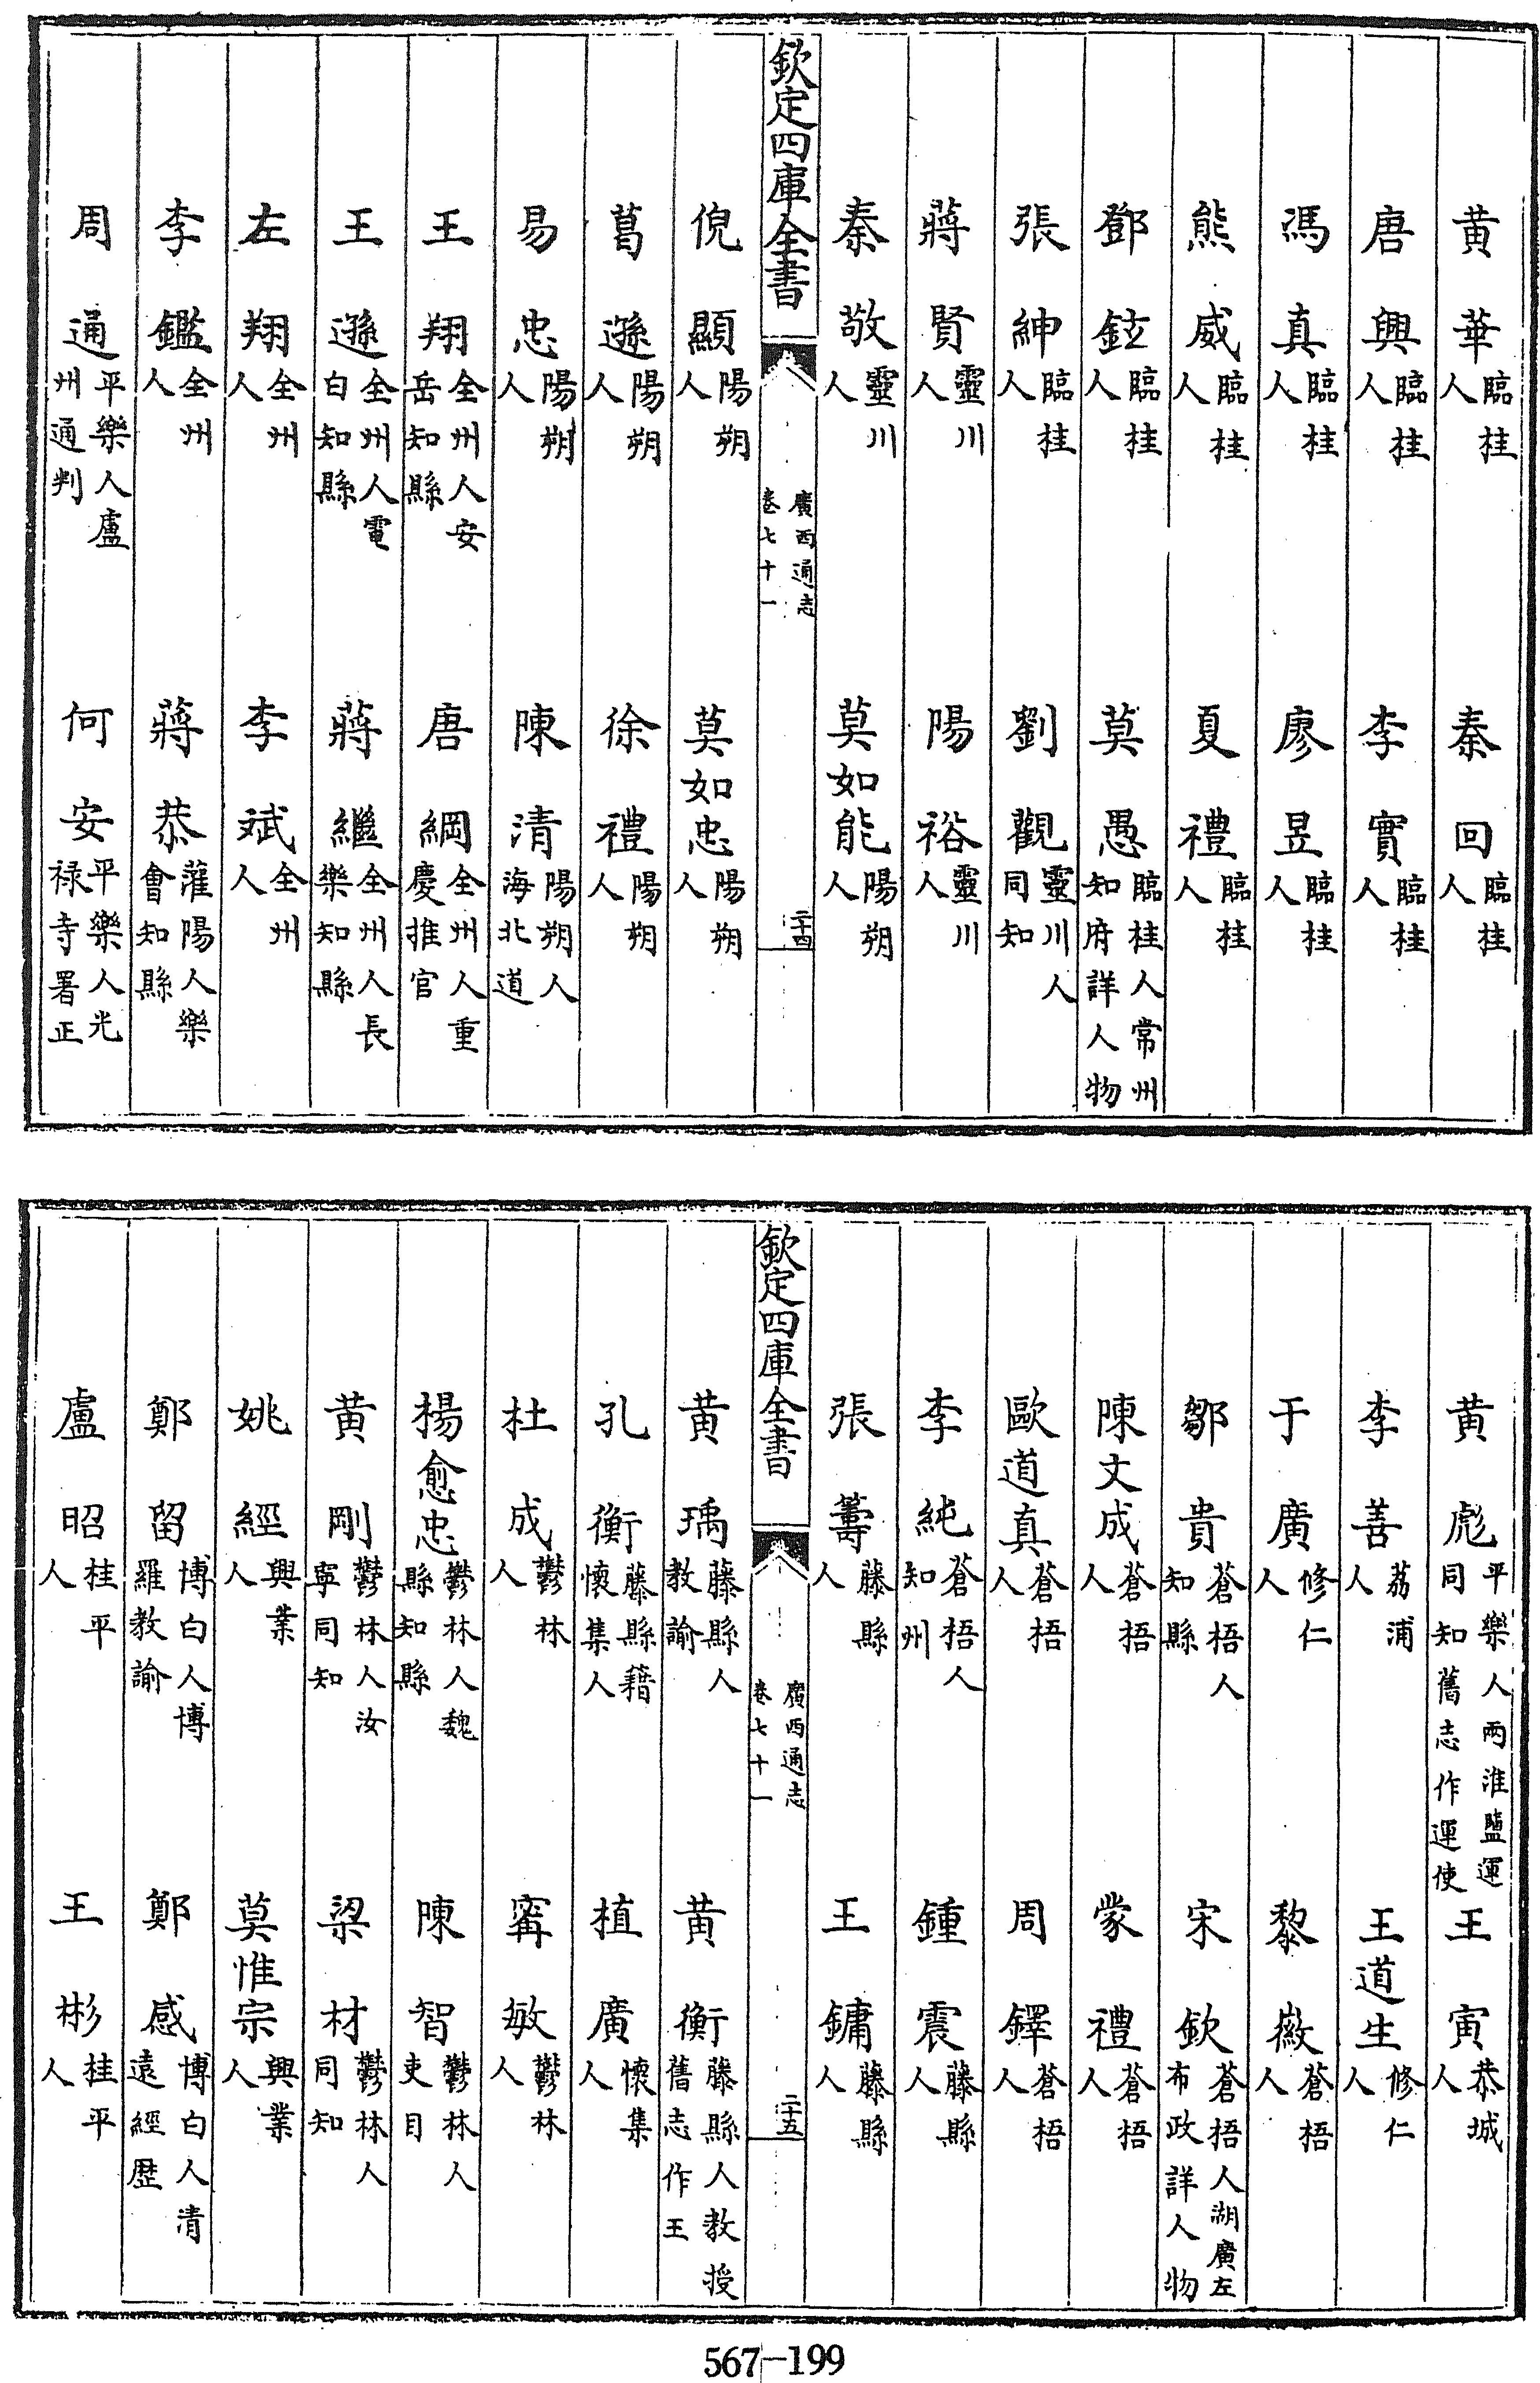 黄華臨桂人　秦回臨桂人
唐興臨桂人　李實臨桂人
馮真臨桂人　廖昱臨桂人
熊威臨桂人　夏禮臨桂人
鄧鉉臨桂人　莫愚臨桂人常州知府詳人物
張紳臨桂人　劉觀靈川人同知
蔣賢靈川人　陽裕靈川人
秦敬靈川人　莫如能陽朔人
欽定四庫全書　廣西通志卷七十一　二十四
倪顯陽朔人　莫如忠陽朔人
葛遜陽朔人　徐禮陽朔人
易忠陽朔人　陳清陽朔人海北道
王翔全州人安岳知縣　唐綱全州人重慶推官
王遜全州人電白知縣　蔣繼全州人長樂知縣
左翔全州人　李斌全州人
李鑑全州人　蔣恭灌陽人樂會知縣
周通平樂人盧州通判　何安平樂人光禄寺署正
黄彪平樂人兩淮鹽運同知舊志作運使　王寅恭城人
李善荔浦人　王道生修仁人
于廣修仁人　黎嶶蒼梧人
鄒貴蒼梧人知縣　宋欽蒼梧人湖廣左布政詳人物
陳文成蒼梧人　蒙禮蒼梧人
歐道真蒼梧人　周鐸蒼梧人
李純蒼梧人知州　鍾震藤縣人
張籌藤縣人　王鏞藤縣人
欽定四庫全書　廣西通志卷七十一　二十五
黄瑀藤縣人教諭　黄衡藤縣人教授舊志作王
孔衡藤縣籍懷集人　植廣懷集人
杜成鬱林人　寗敏鬱林人
楊愈忠鬱林人魏縣知縣　陳智鬱林人吏目
黄剛鬱林人汝寧同知　梁材鬱林人同知
姚經興業人　莫惟宗興業人
鄭留博白人博羅教諭　鄭感博白人清遠經歷
盧昭桂平人　王彬桂平人
567—199